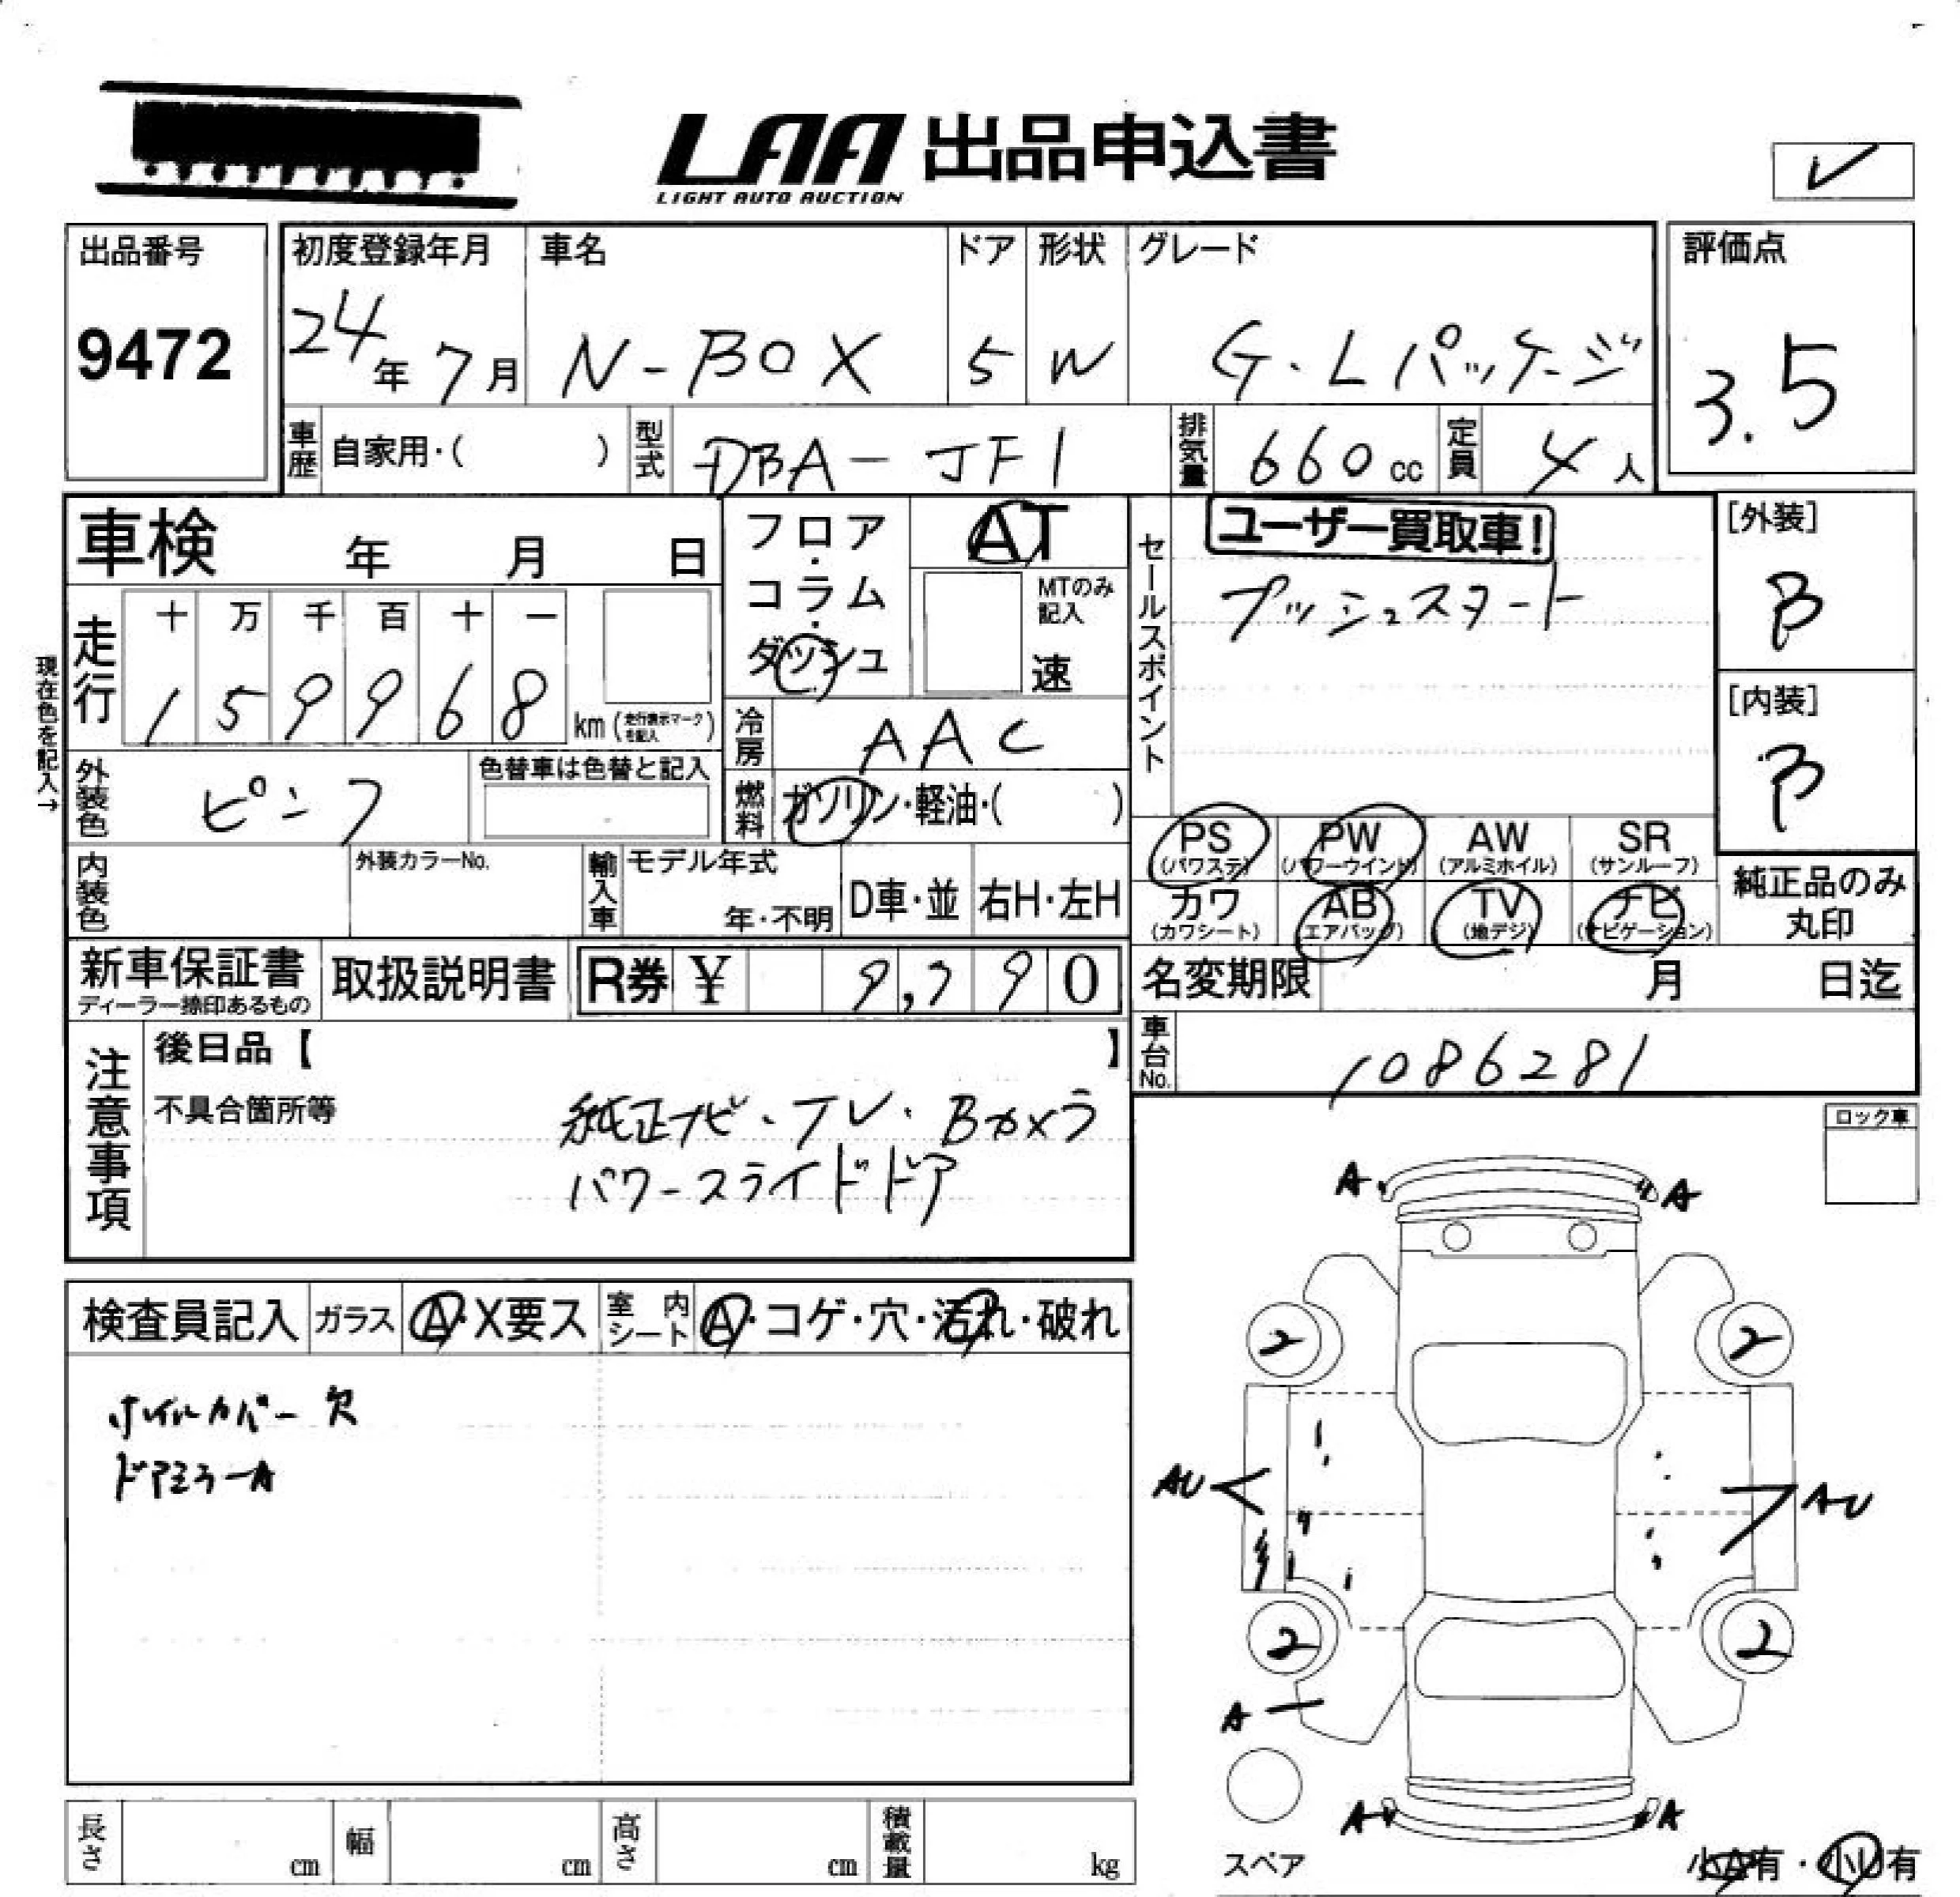 LAA 出品申込書
LIGHT AUTO AUCTION
出品番号
9472
初度登録年月
24年7月
車名
N-BOX
ドア
5
形状
W
グレード
G・Lパッケージ
評価点
3.5
車歴 自家用・( )
型式 DBA-JF1
排気量 660cc
定員 4人
車検 年 月 日
フロア・コラム・ダッシュ
AT
MTのみ記入
速
セールスポイント
ユーザー買取車!
プッシュスタート
[外装]
B
[内装]
B
現在色を記入→
走行
十 万 千 百 十 一
1 5 9 9 6 8 km (走行表示マークを記入)
冷房 AAC
外装色 ピンク
色替車は色替と記入
燃料 ガソリン・軽油・( )
PS (パワステ)
PW (パワーウインド)
AW (アルミホイル)
SR (サンルーフ)
内装色
外装カラーNo.
輸入車
モデル年式
年・不明
D車・並
右H・左H
カワ (カワシート)
AB (エアバッグ)
TV (地デジ)
ナビ (ナビゲーション)
純正品のみ丸印
新車保証書
ディーラー捺印あるもの
取扱説明書
R券 ¥ 9,790
名変期限 月 日迄
注意事項
後日品【 】
不具合箇所等
純正ナビ・TV・Bカメラ
パワースライドドア
車台No. 1086281
ロック車
検査員記入
ガラス A・X要ス
室内シート A・コゲ・穴・汚れ・破れ
ホイルカバー欠
ドアミラーA
A A
2 2
AU AU
2 2
A
A A
スペア
小A有・小U有
長さ cm
幅 cm
高さ cm
積載量 kg